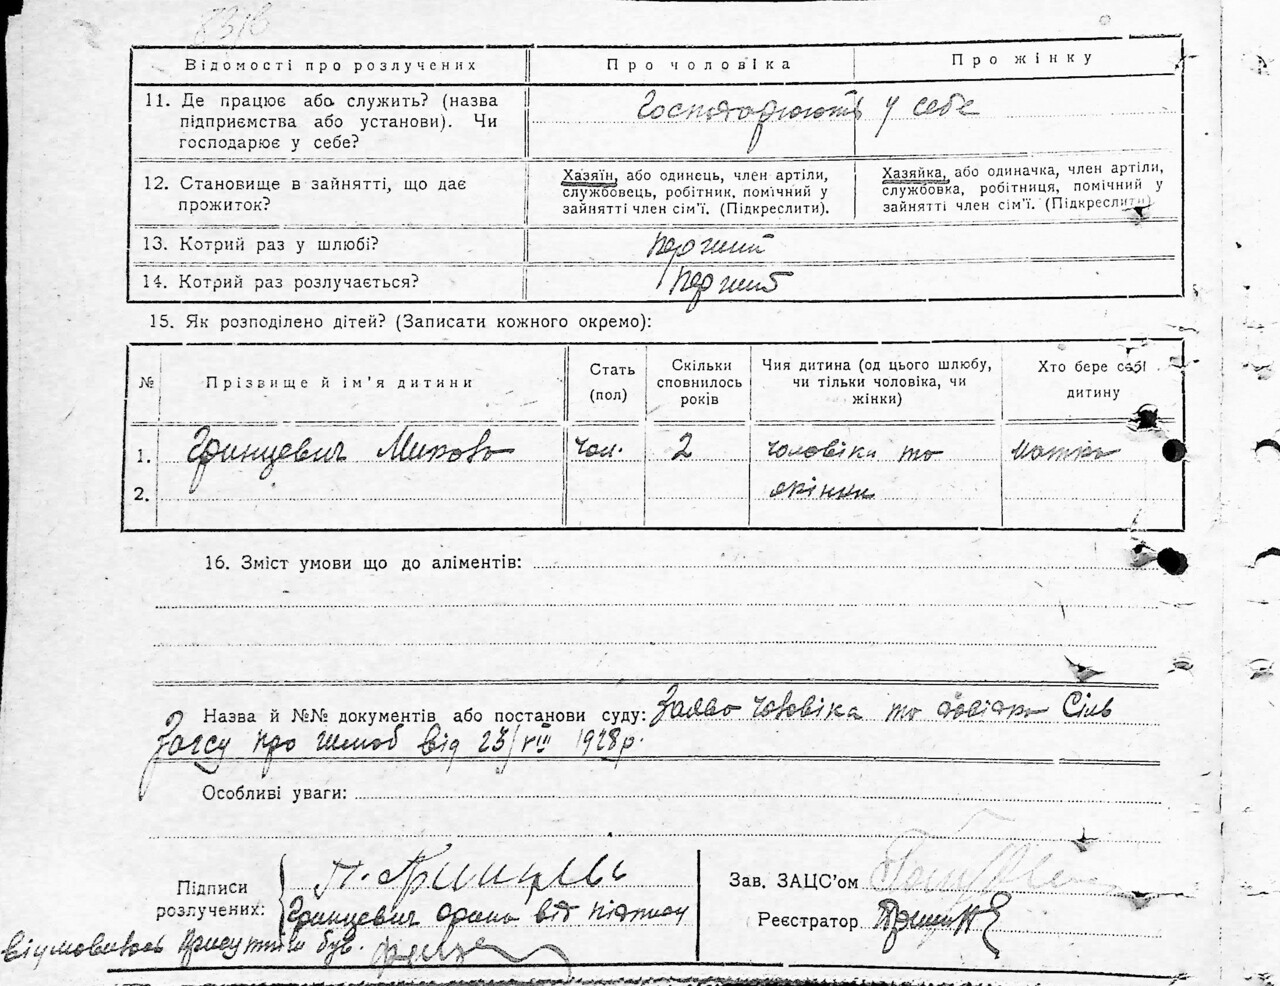 Відомості про розлучених
Про чоловіка
Про жінку
11. Де працює або служить? (назва
підприємства або установи). Чи
господарює у себе?
Господарюють у себе
12. Становище в зайнятті, що дає
прожиток?
Хазяїн, або одинець, член артіли,
службовець, робітник, помічний у
зайнятті член сім'ї. (Підкреслити).
Хазяйка, або одиначка, член артіли,
службовка, робітниця, помічний у
зайнятті член сім'ї. (Підкреслити)
13. Котрий раз у шлюбі?
перший
14. Котрий раз розлучається?
перший
15. Як розподілено дітей? (Записати кожного окремо):
№
Прізвище й ім'я дитини
Стать
(пол)
Скільки
сповнилось
років
Чия дитина (од цього шлюбу,
чи тільки чоловіка, чи
жінки)
Хто бере собі
дитину
1. Гринцевич Микова чол. 2 чоловіка та матка
2. жінки
16. Зміст умови що до аліментів:
Назва й №№ документів або постанови суду: Заява чоловіка та довідка Сіль
Загсу про шлюб від 23/VIII 1928 р.
Особливі уваги:
Підписи
розлучених:
Гринцевич від підпису
відмовилась Присутній був.
Зав. ЗАЦС'ом
Реєстратор